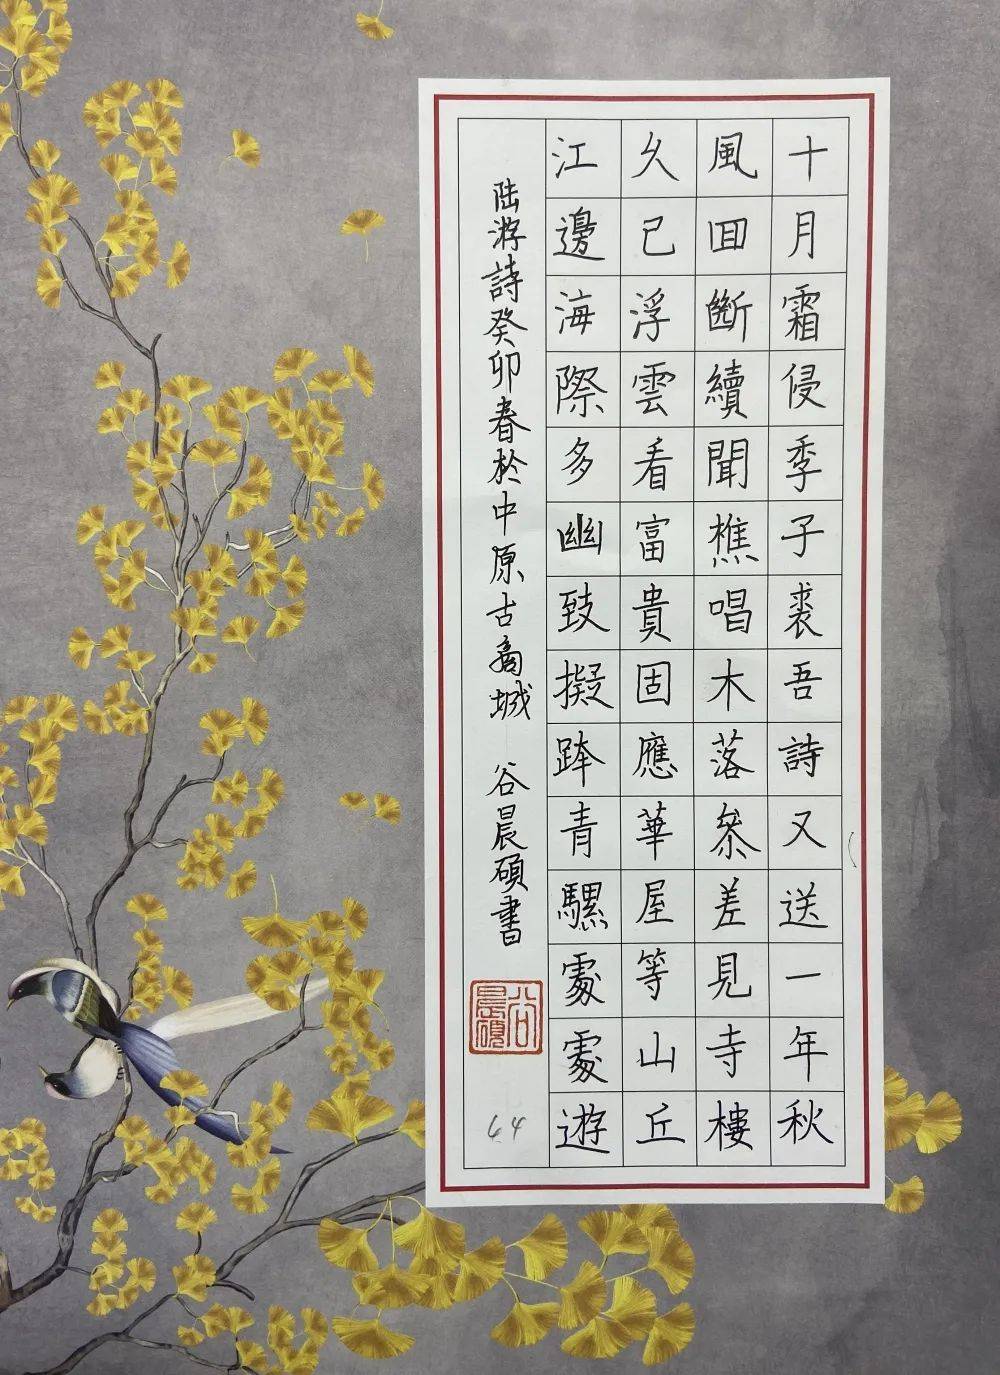 十月霜侵季子裘吾詩又送一年秋
風回斷續聞樵唱木落參差見寺樓
久已浮雲看富貴固應華屋等山丘
江邊海際多幽致擬跨青騾處處遊
陆游詩癸卯春於中原古商城 谷晨碩書
谷晨碩
44